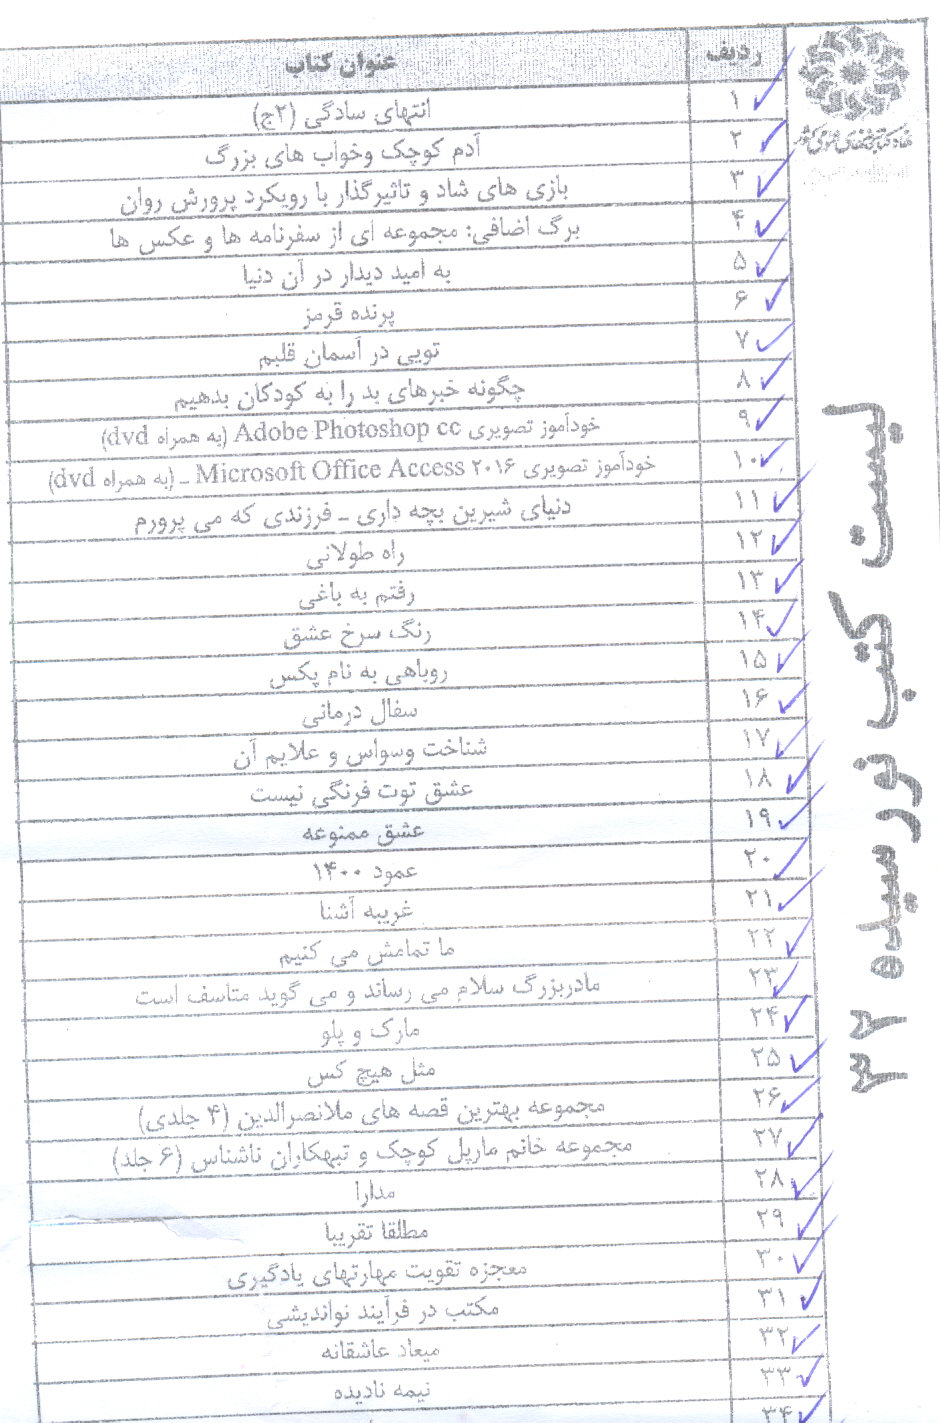 نهاد کتابخانه‌های عمومی کشور
لیست کتب نورسیده ۳۲
ردیف عنوان کتاب
۱ انتهای سادگی (۲ج)
۲ آدم کوچک وخواب های بزرگ
۳ بازی های شاد و تاثیرگذار با رویکرد پرورش روان
۴ برگ اضافی: مجموعه ای از سفرنامه ها و عکس ها
۵ به امید دیدار در آن دنیا
۶ پرنده قرمز
۷ تویی در آسمان قلبم
۸ چگونه خبرهای بد را به کودکان بدهیم
۹ خودآموز تصویری Adobe Photoshop cc (به همراه dvd)
۱۰ خودآموز تصویری Microsoft Office Access ۲۰۱۶ ـ (به همراه dvd)
۱۱ دنیای شیرین بچه داری ـ فرزندی که می پرورم
۱۲ راه طولانی
۱۳ رفتم به باغی
۱۴ رنگ سرخ عشق
۱۵ روباهی به نام پکس
۱۶ سفال درمانی
۱۷ شناخت وسواس و علایم آن
۱۸ عشق توت فرنگی نیست
۱۹ عشق ممنوعه
۲۰ عمود ۱۴۰۰
۲۱ غریبه آشنا
۲۲ ما تمامش می کنیم
۲۳ مادربزرگ سلام می رساند و می گوید متاسف است
۲۴ مارک و پلو
۲۵ مثل هیچ کس
۲۶ مجموعه بهترین قصه های ملانصرالدین (۴ جلدی)
۲۷ مجموعه خانم مارپل کوچک و تبهکاران ناشناس (۶ جلد)
۲۸ مدارا
۲۹ مطلقا تقریبا
۳۰ معجزه تقویت مهارتهای یادگیری
۳۱ مکتب در فرآیند نواندیشی
۳۲ میعاد عاشقانه
۳۳ نیمه نادیده
۳۴